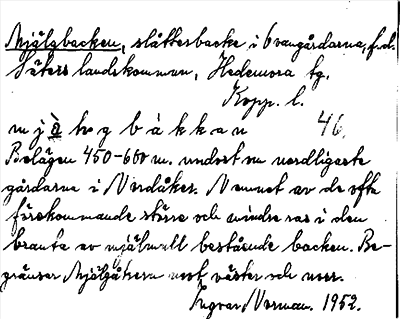 Mjälgbacken, slåtterbacke i Ovangårdarna, f.d.
Säters landskommun, Hedemora tg.
Kopp. l.
m j ä l v g b à k k a n 46.
Belägen 450-600 m. undost om nordligaste
gårdarna i Nordåker. Namnet av de ofta
förekommande större och mindre ras i den
branta av mjälmull bestående backen. Be-
gränsar Mjälgåkern mot väster och norr.
Ingvar Norman. 1952.